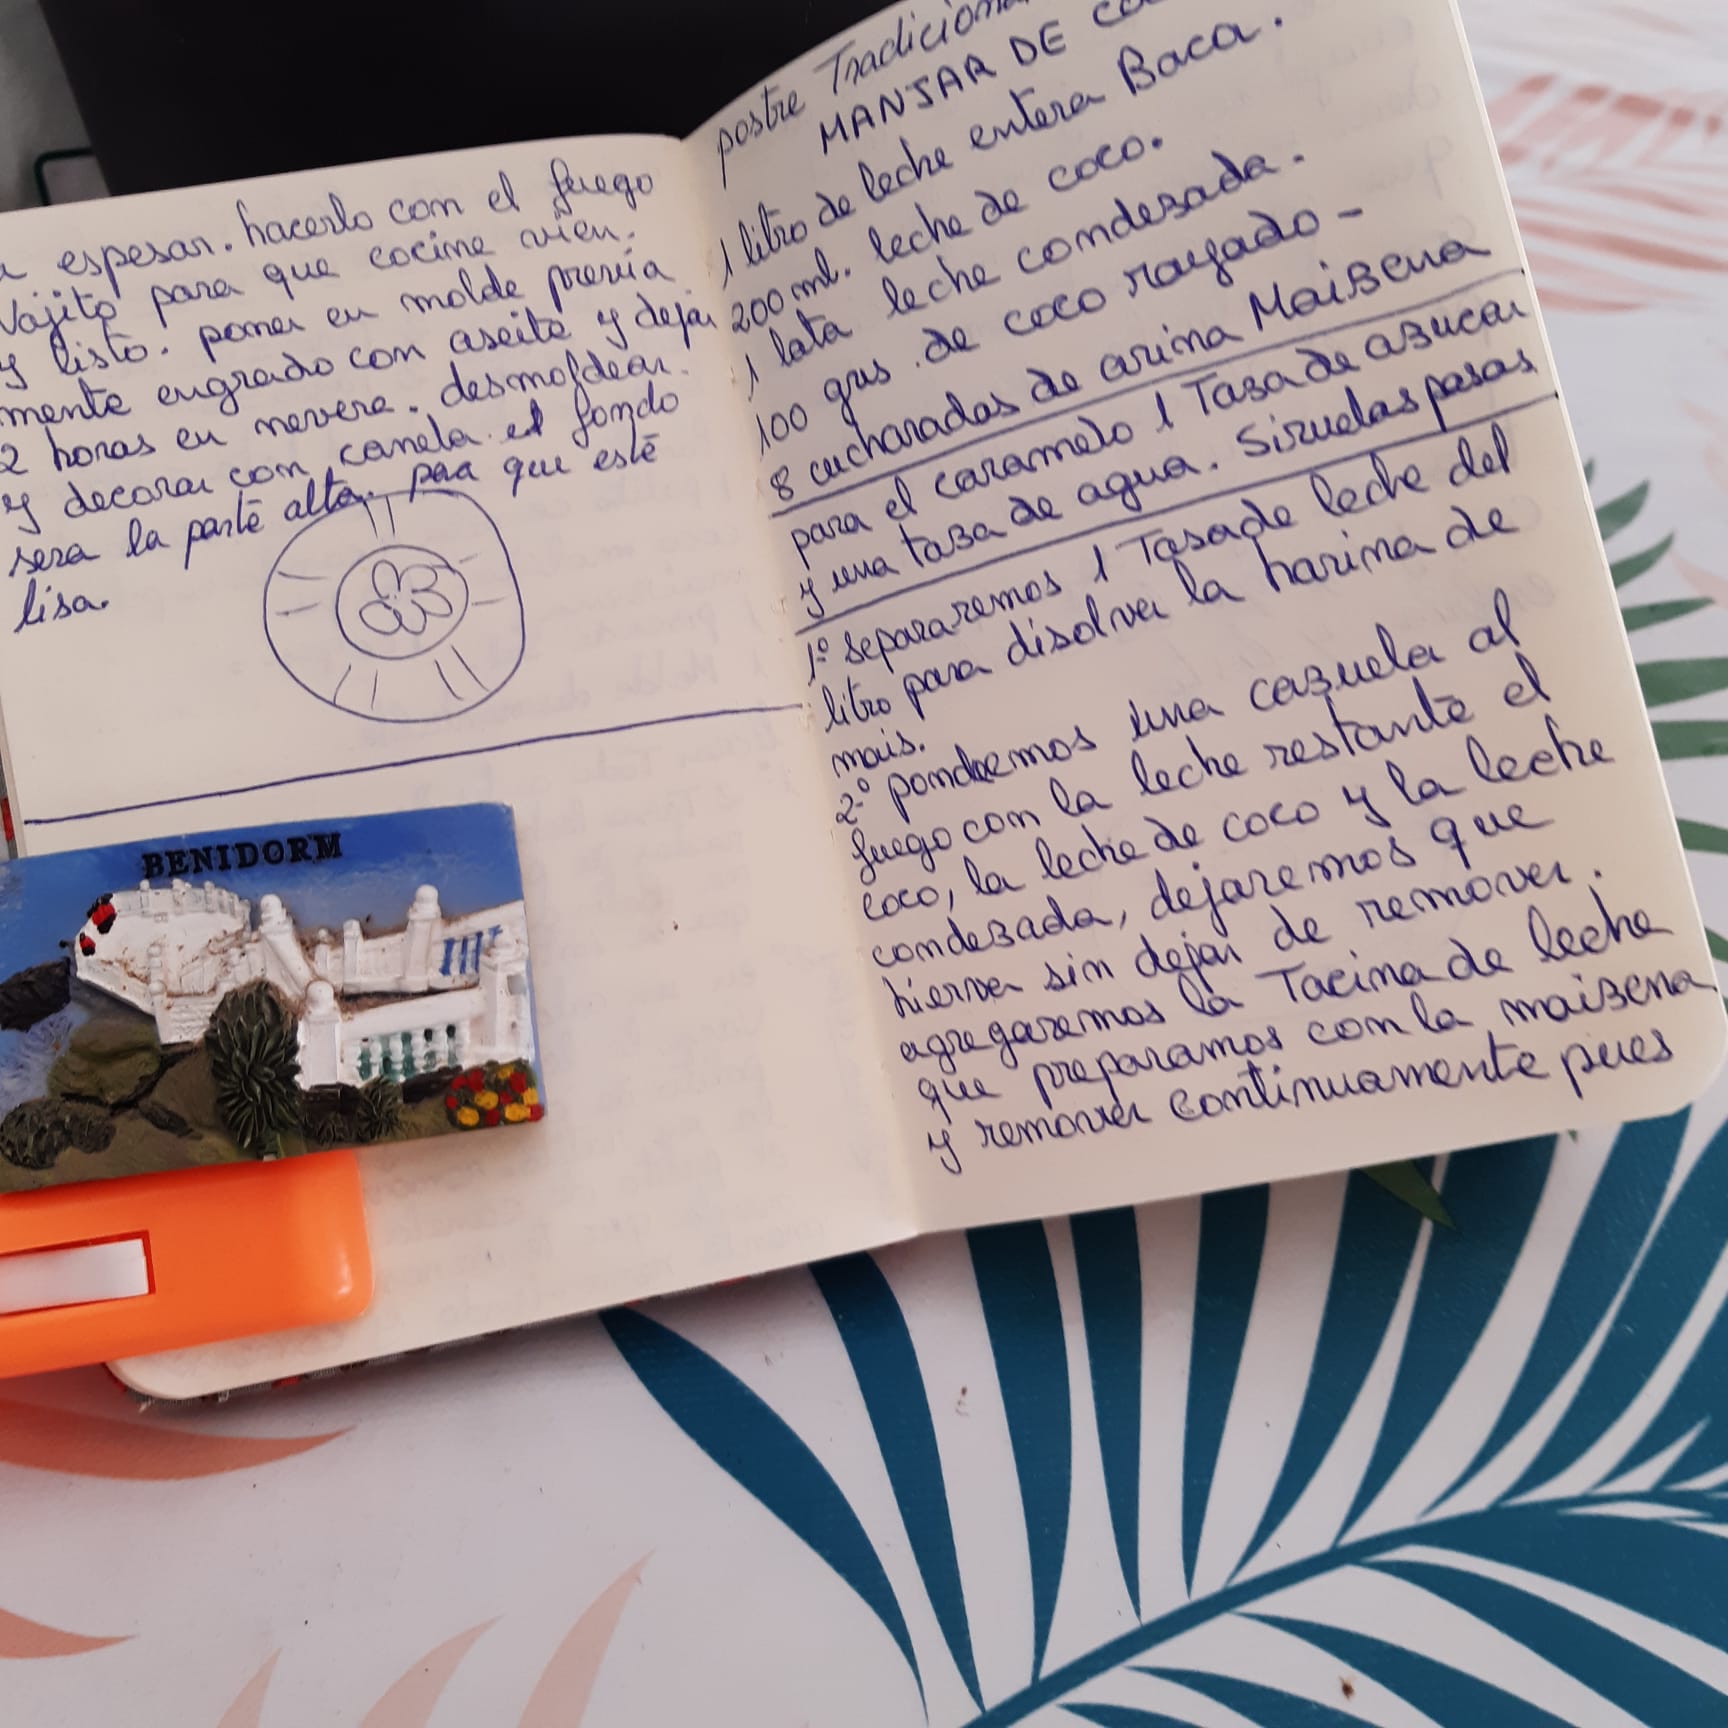 a espesar. hacerlo con el fuego
vajito para que cocine vien.
y listo. poner en molde previa
mente engrado con aseite y dejar
2 horas en nevera. desmoldear.
y decorar con canela. el fondo
sera la parte alta. paa que esté
lisa.
BENIDORM
postre Tradicional
MANJAR DE
1 litro de leche entera Baca.
200 ml. leche de coco.
1 lata leche condezada.
100 grs. de coco rayado -
8 cucharadas de arina Maizena
para el caramelo 1 Taza de azucar
y una taza de agua. Siruelas pasas
1º separaremos 1 Tasa de leche del
litro para disolver la harina de
mais.
2º pondremos una cazuela al
fuego con la leche restante el
coco, la leche de coco y la leche
condezada, dejaremos que
hierva sin dejar de remover.
agregaremos la Tacina de leche
que preparamos con la maizena
y remover continuamente pues